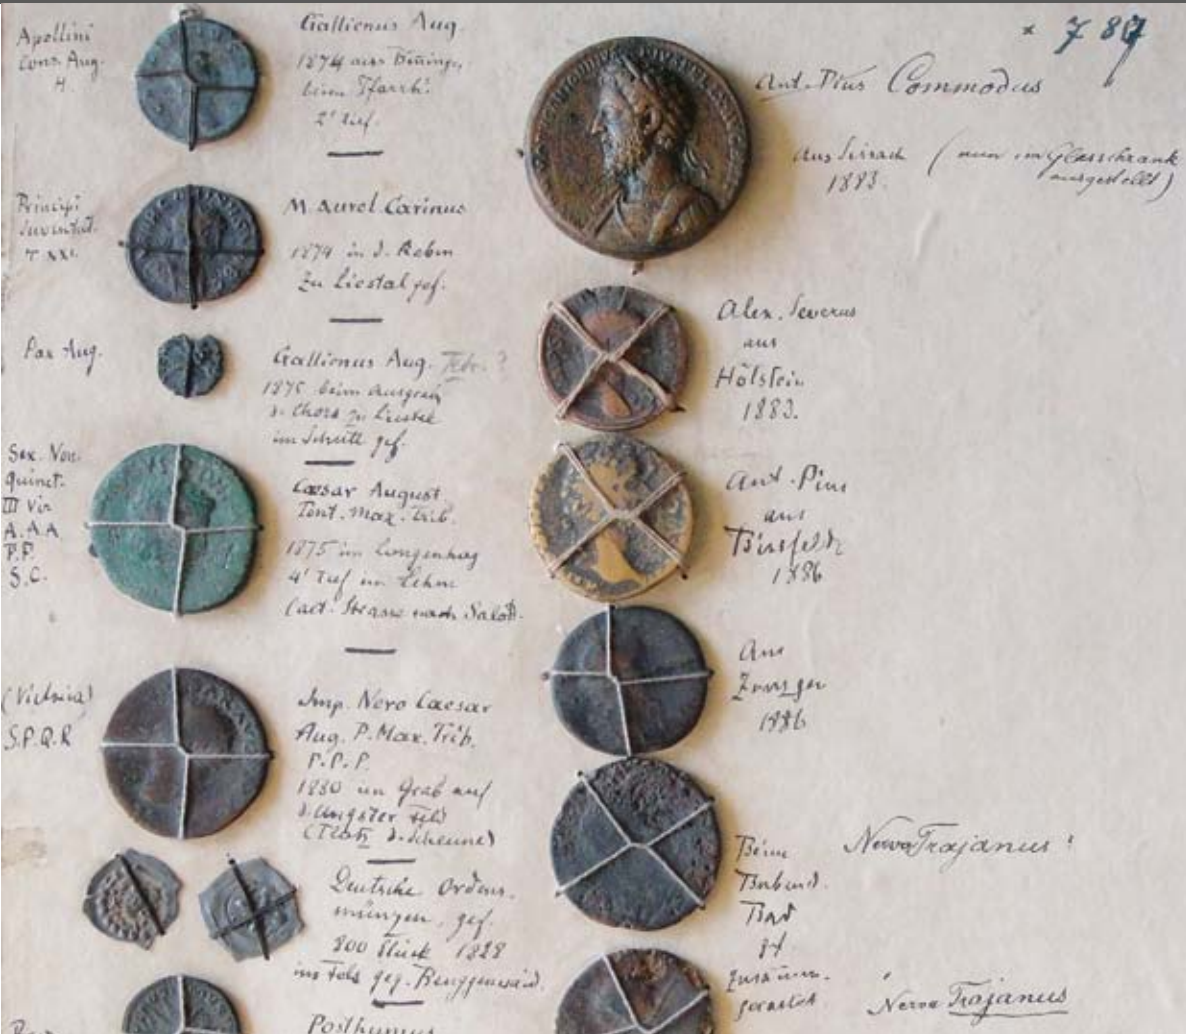 Apollini
Cons. Aug.
H.
Gallienus Aug.
1874 aus
beim Pfarrh:
2' tief.
Principi
Juventut.
XXI.
M. Aurel. Carinus
1874 in d. Reben
zu Liestal gef.
Pax Aug.
Gallienus Aug. ?
1875 beim
d. Chors zu Liestal
im Schutt gef.
Sex. Non.
Quinct.
III Vir
A.A.A
F.F.
S.C.
Caesar August
Pont. Max. Trib.
1875 im
4' tief im Lehm
Strasse nach
(Victoria)
S.P.Q.R
Imp. Nero Caesar
Aug. P. Max. Trib.
P.P.P.
1880 im Grab auf
d.
d. Scheune)
Deutsche Ordens-
münzen, gef.
800 Stück 1828
Posthumus
× 787
Ant. Pius Commodus
Aus Sissach (nun im Glasschrank
ausgestellt)
1883.
Alex. Severus
aus
Hölstein
1883.
Ant. Pius
aus
Birsfeld
1886
Aus
1886
Beim
Bad
gf
Nerva Trajanus?
Nerva Trajanus